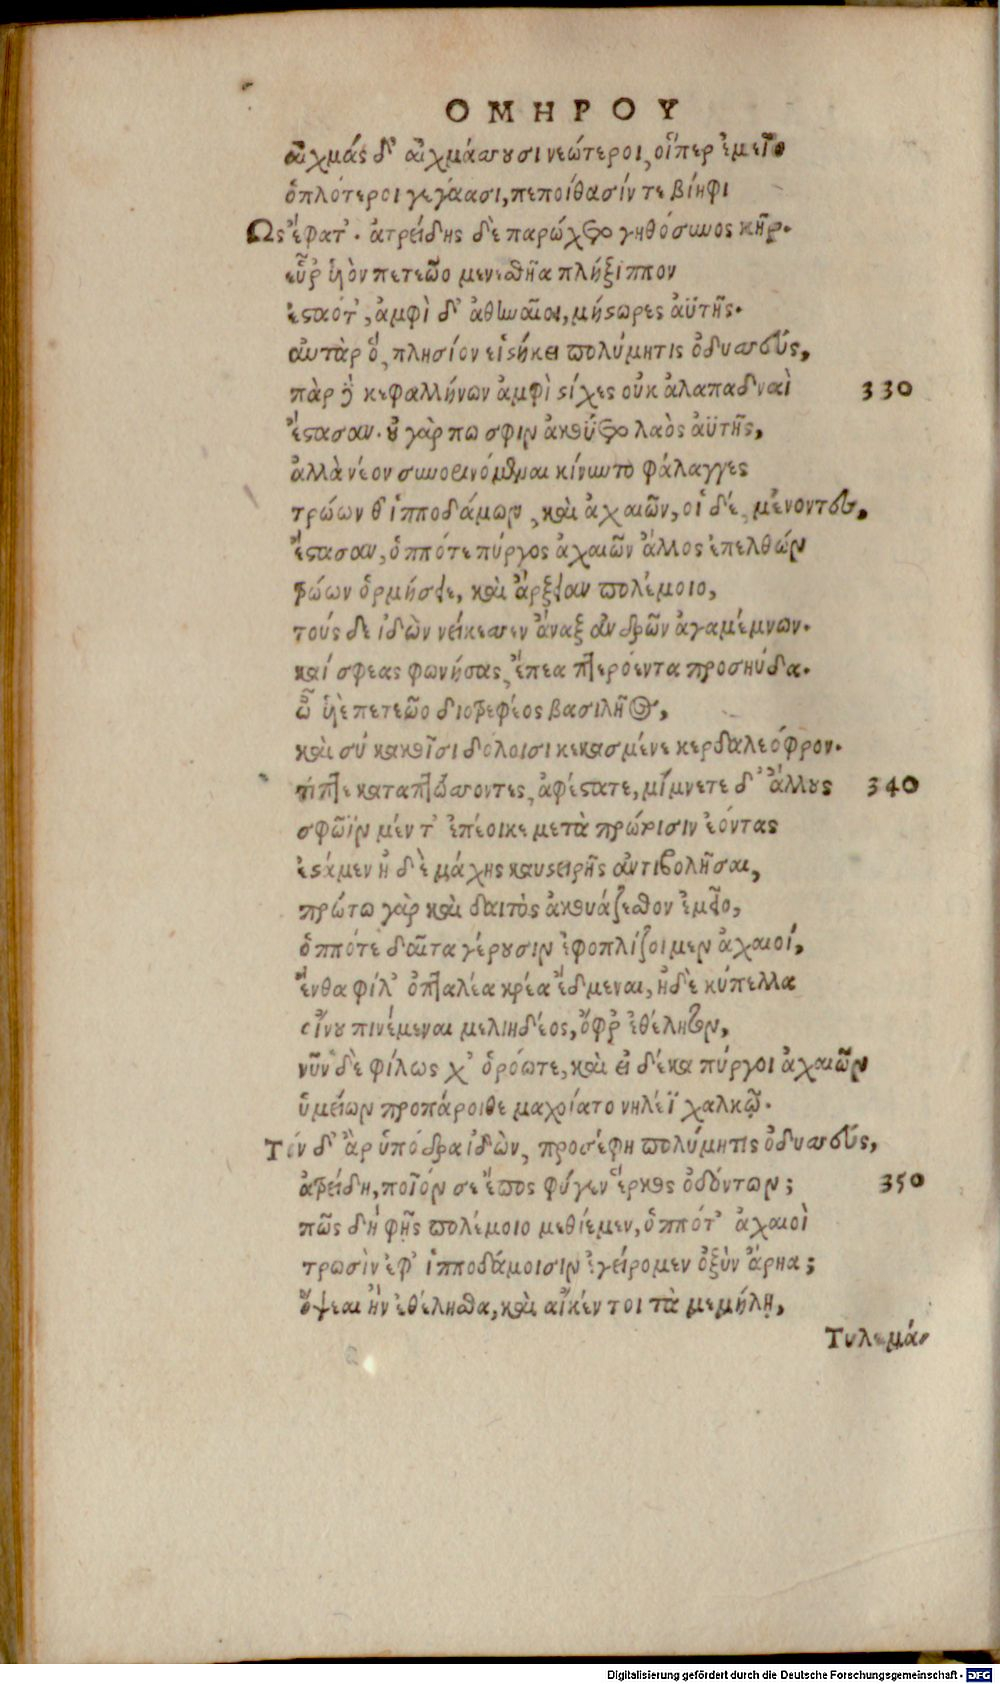 ΟΜΗΡΟΥ
αἰχμάς δ' αἰχμάσσουσι νεώτεροι, οἵπερ ἐμεῖο
ὁπλότεροι γεγάασι, πεποίθασίν τε βίηφι
Ως ἔφατ'. ἀτρείδης δὲ παρώχετο γηθόσυνος κῆρ.
εὗρ' υἱὸν πετεῶο μενεσθῆα πλήξιππον
ἑσταότ', ἀμφὶ δ' ἀθηναῖοι, μήστωρες ἀϋτῆς.
αὐτὰρ ὁ, πλησίον εἱστήκει πολύμητις ὀδυσσεύς,
πὰρ δὲ κεφαλλήνων ἀμφὶ στίχες οὐκ ἀλαπαδναὶ 330
ἕστασαν. οὐ γὰρ πω σφιν ἀκούετο λαὸς ἀϋτῆς,
ἀλλὰ νέον συνορινόμεναι κίνυντο φάλαγγες
τρώων θ' ἱπποδάμων, καὶ ἀχαιῶν, οἱ δὲ, μένοντες,
ἕστασαν, ὁππότε πύργος ἀχαιῶν ἄλλος ἐπελθών
τρώων ὁρμήσειε, καὶ ἄρξειαν πολέμοιο,
τούς δε ἰδὼν νείκεσσεν ἄναξ ἀνδρῶν ἀγαμέμνων.
καί σφεας φωνήσας, ἔπεα πτερόεντα προσηύδα.
ὦ υἱὲ πετεῶο διοτρεφέος βασιλῆος,
καὶ σύ κακοῖσι δόλοισι κεκασμένε κερδαλεόφρον.
τίπτε καταπτώσσοντες, ἀφέστατε, μίμνετε δ' ἄλλους 340
σφῶϊν μέν τ' ἐπέοικε μετὰ πρώτοισιν ἐόντας
ἑστάμεν ἠδὲ μάχης καυστειρῆς ἀντιβολῆσαι,
πρώτω γὰρ καὶ δαιτὸς ἀκουάζεσθον ἐμεῖο,
ὁππότε δαῖτα γέρουσιν ἐφοπλίζοιμεν ἀχαιοί,
ἔνθα φίλ' ὀπταλέα κρέα ἔδμεναι, ἠδὲ κύπελλα
οἴνου πινέμεναι μελιηδέος, ὄφρ' ἐθέλητον,
νῦν δὲ φίλως χ' ὁρόωτε, καὶ εἰ δέκα πύργοι ἀχαιῶν
ὑμείων προπάροιθε μαχοίατο νηλέϊ χαλκῷ.
Τὸν δ' ἂρ ὑπόδρα ἰδὼν, προσέφη πολύμητις ὀδυσσεύς,
ἀτρείδη, ποῖόν σε ἔπος φύγεν ἕρκος ὀδόντων; 350
πῶς δὴ φῇς πολέμοιο μεθίεμεν, ὁππότ' ἀχαιοὶ
τρωσὶν ἐφ' ἱπποδάμοισιν ἐγείρομεν ὀξὺν ἄρηα;
ὄψεαι ἢν ἐθέλησθα, καὶ αἴκέν τοι τὰ μεμήλῃ,
Τηλεμά-
Digitalisierung gefördert durch die Deutsche Forschungsgemeinschaft - DFG